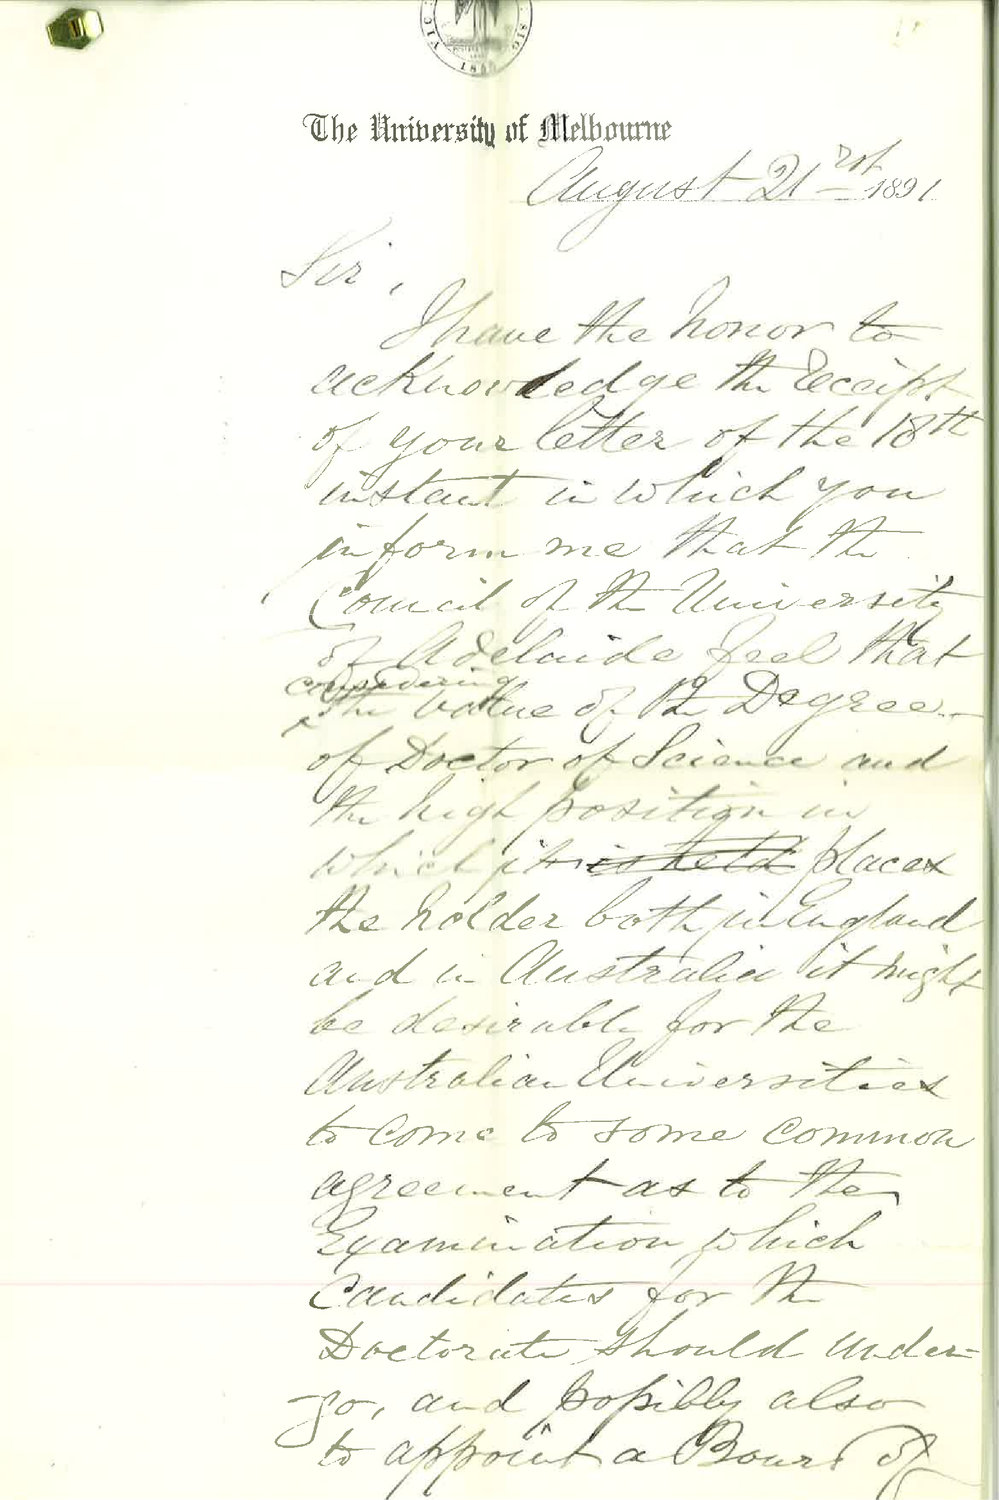 VIC SIG
The University of Melbourne
August 21rst 1891
Sir,
I have the honor to
acknowledge the receipt
of your letter of the 18th
instant in which you
inform me that the
Council of the University
of Adelaide feel that
considering
the value of the Degree
of Doctor of Science and
the high position in
which it is held places
the holder both in England
and in Australia it might
be desirable for the
Australian Universities
to come to some common
agreement as to the
Examination which
Candidates for the
Doctorate should under-
go, and possibly also
to appoint a Board of